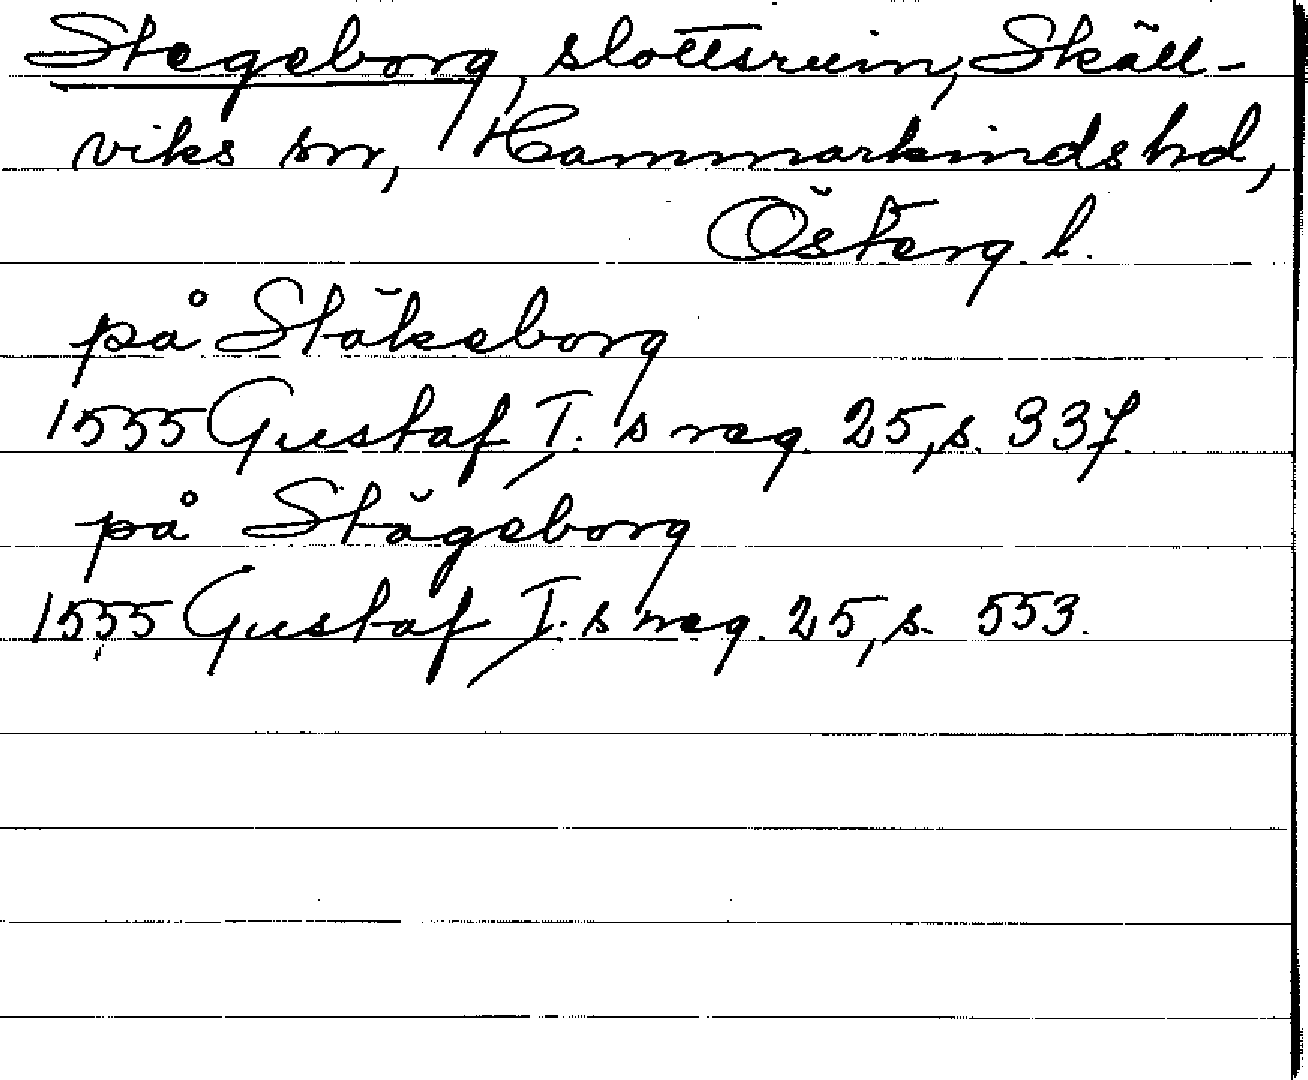 Stegeborg, slottsruin, Skäll-
viks sn, Hammarkinds hd,
Österg. l.
på Stäkeborg
1555 Gustaf I. s reg. 25, s. 337.
på Stägeborg
1555 Gustaf I. s reg. 25, s. 553.